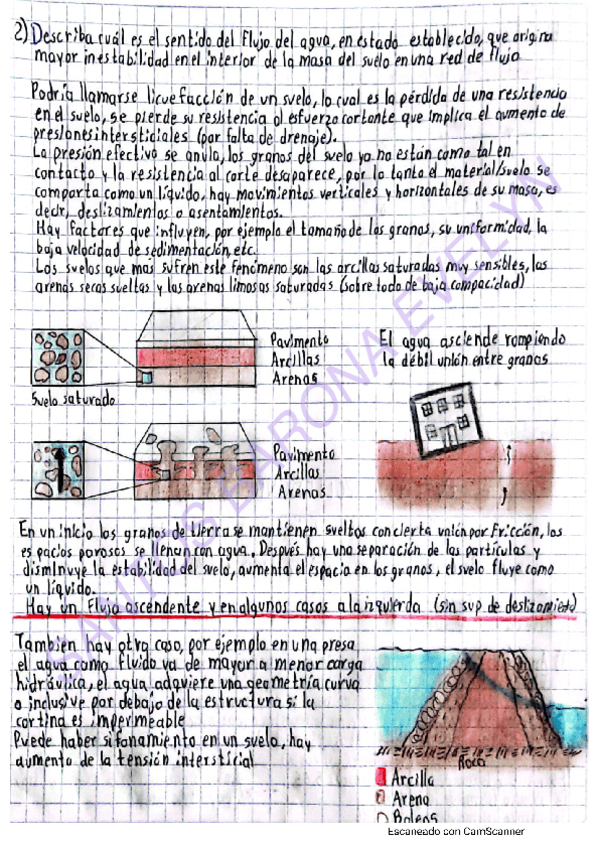 2) Describa cuál es el sentido del flujo del agua, en estado establecido, que origina
mayor inestabilidad en el interior de la masa del suelo en una red de flujo
Podría llamarse licuefacción de un suelo, lo cual es la pérdida de una resistencia
en el suelo, se pierde su resistencia al esfuerzo cortante que implica el aumento de
presiones intersticiales (por falta de drenaje).
La presión efectivo se anula, los granos del suelo ya no están como tal en
contacto y la resistencia al corte desaparece, por lo tanto el material/suelo se
comporta como un líquido, hay movimientos verticales y horizontales de su masa, es
decir, deslizamientos o asentamientos.
Hay factores que influyen, por ejemplo el tamaño de los granos, su uniformidad, la
baja velocidad de sedimentación, etc.
Los suelos que mas sufren este fenómeno son las arcillas saturadas muy sensibles, las
arenas secas sueltas y las arenas limosas saturadas (sobre todo de baja compacidad)
Pavimento
Arcillas
Arenas
Suelo saturado
El agua asciende rompiendo
la débil unión entre granos
Pavimento
Arcillas
Arenas
En un inicio los granos de tierra se mantienen sueltos con cierta unión por fricción, los
espacios porosos se llenan con agua. Después hay una separación de las partículas y
disminuye la estabilidad del suelo, aumenta el espacio en los granos, el suelo fluye como
un líquido.
Hay un flujo ascendente y en algunos casos a la izquierda (sin sup de deslizamiento)
Tambien hay otro caso, por ejemplo en una presa
el agua como fluido va de mayor a menor carga
hidráulica, el agua adquiere una geometría curva
o inclusive por debajo de la estructura si la
cortina es impermeable
Puede haber sifonamiento en un suelo, hay
aumento de la tensión intersticial
Roca
Arcilla
Arena
Boleos
SANTOS BARONA EVELYN
Escaneado con CamScanner